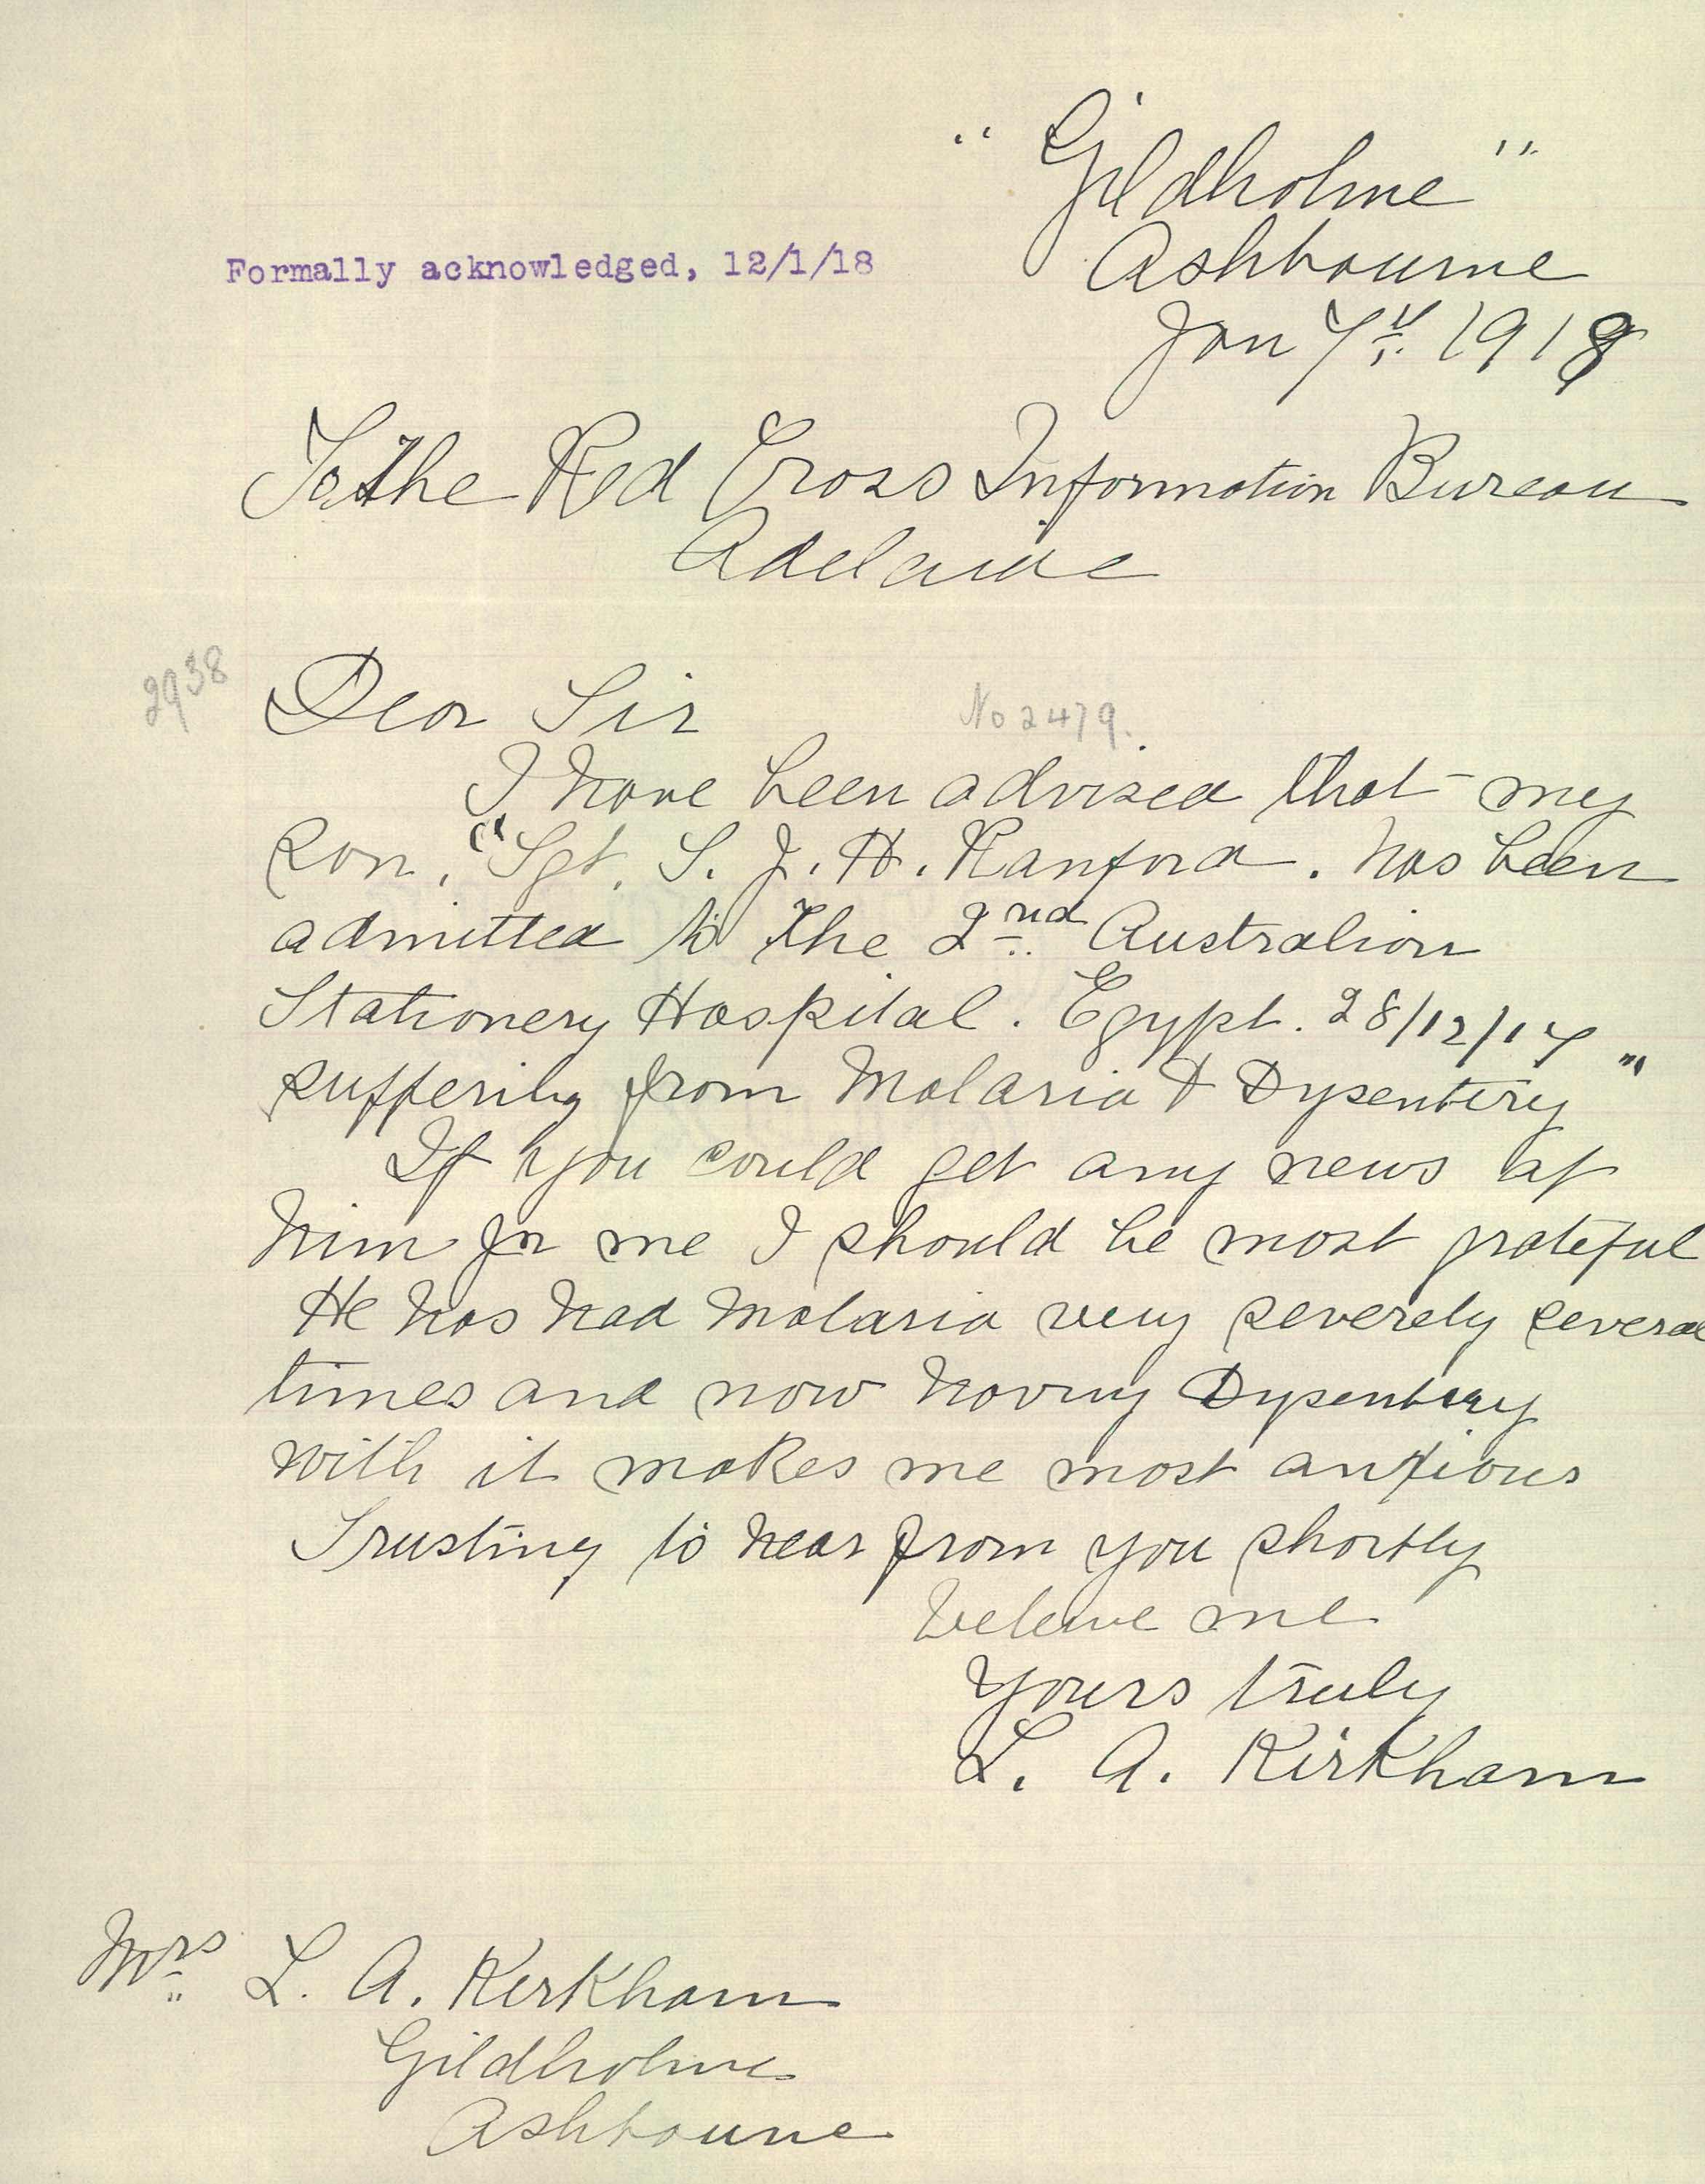 "Gildholme"
Ashbourne
Formally acknowledged, 12/1/18
Jan 7th 1918
To the Red Cross Information Bureau
Adelaide
2938
Dear Sir
No 2479.
I have been advised that my
son, "Sgt. S. J. H. Ranford. has been
admitted to the 2nd Australian
Stationery Hospital. Egypt. 28/12/17
suffering from Malaria & Dysentery"
If you could get any news of
him for me I should be most grateful
He has had Malaria very severely several
times and now having Dysentery
with it makes me most anxious
Trusting to hear from you shortly
believe me
Yours truly
L. A. Kirkham
Mrs L. A. Kirkham
Gildholme
Ashbourne